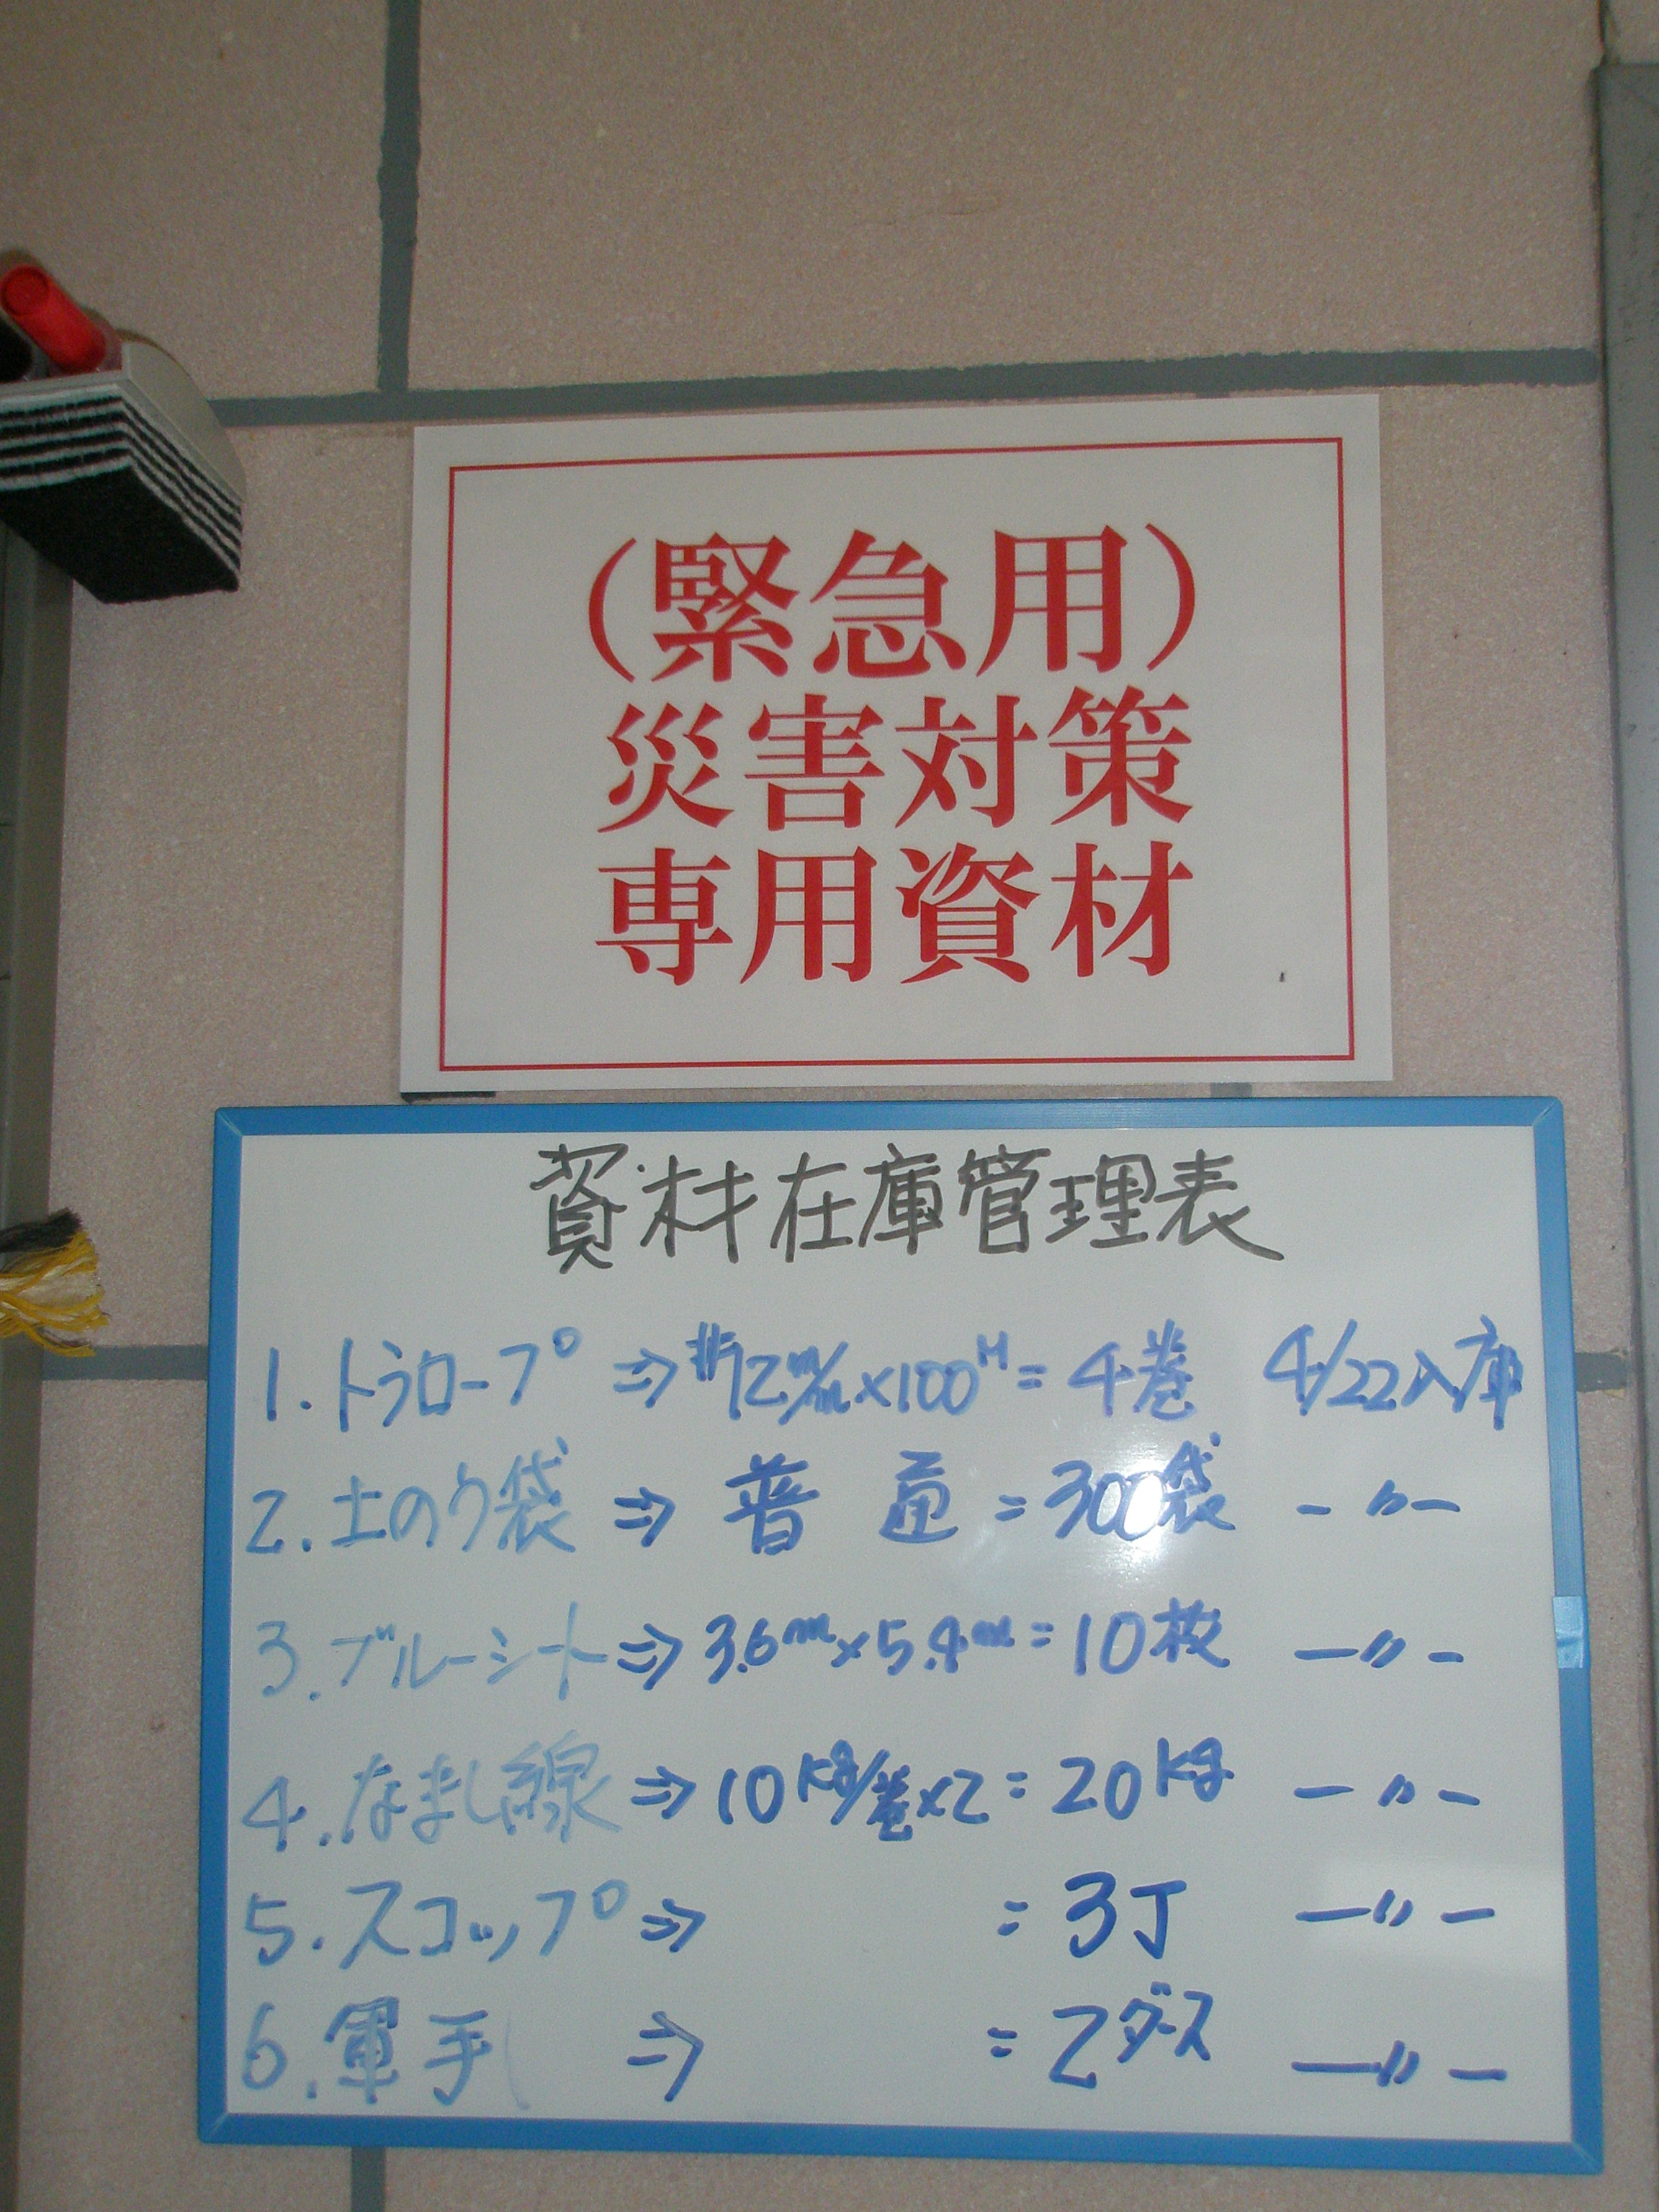 (緊急用)
災害対策
専用資材
資材在庫管理表
1. トラロープ ⇒ #12m/m×100M = 4巻 4/22入庫
2.土のう袋 ⇒ 普通 = 300袋 - 〃 -
3. ブルーシート ⇒ 3.6m×5.4m = 10枚 - 〃 -
4. なまし線 ⇒ 10kg/巻×2 = 20kg - 〃 -
5. スコップ ⇒ = 3丁 - 〃 -
6. 軍手 ⇒ = 2ダース - 〃 -